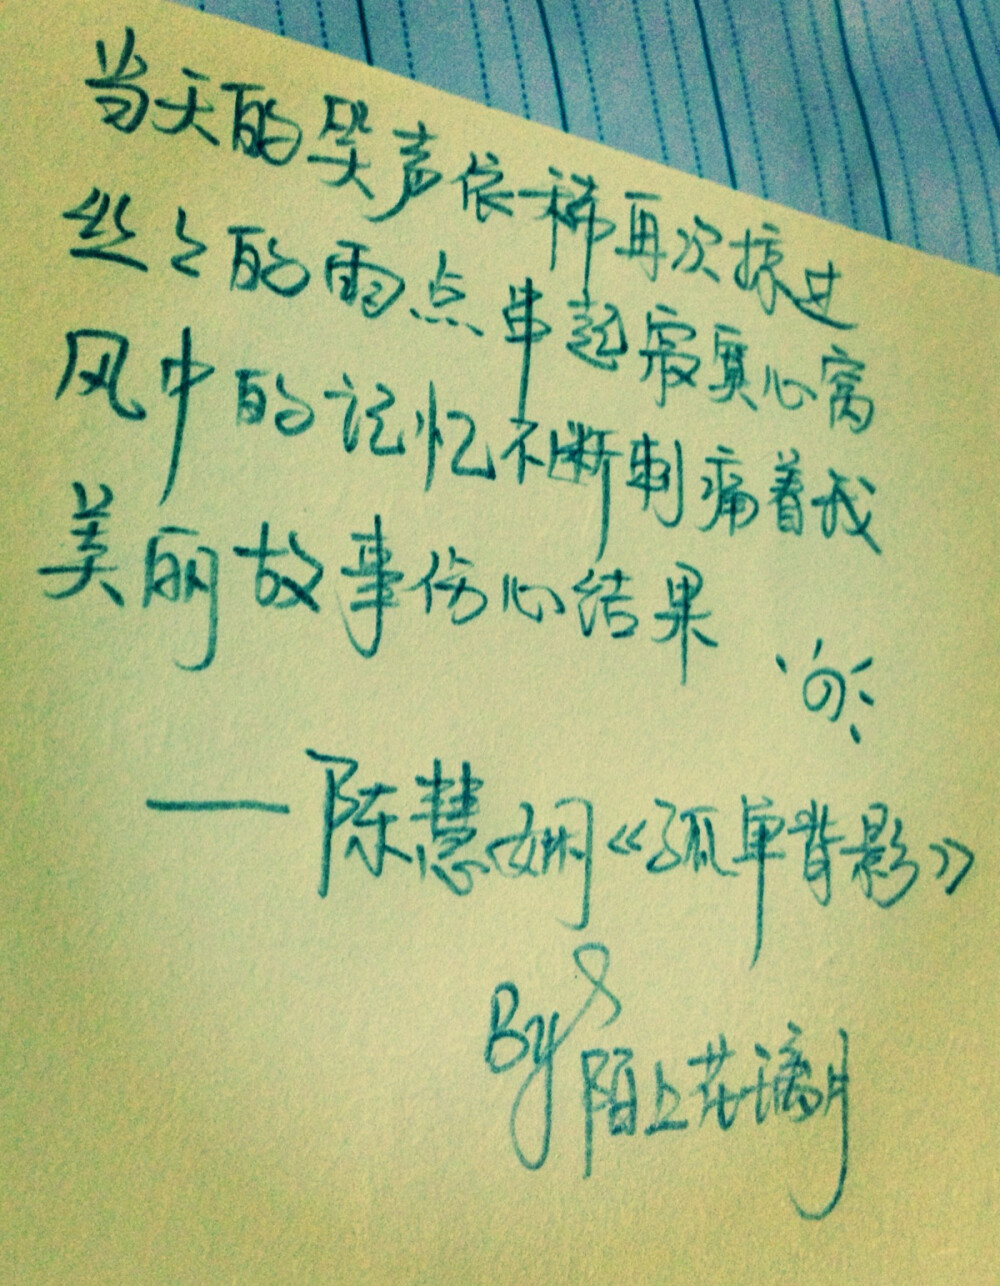 当天的哭声依稀再次掠过
丝々的雨点串起寂寞心窝
风中的记忆不断刺痛着我
美丽故事伤心结果
——陈慧娴《孤单背影》
By 陌上花漓月